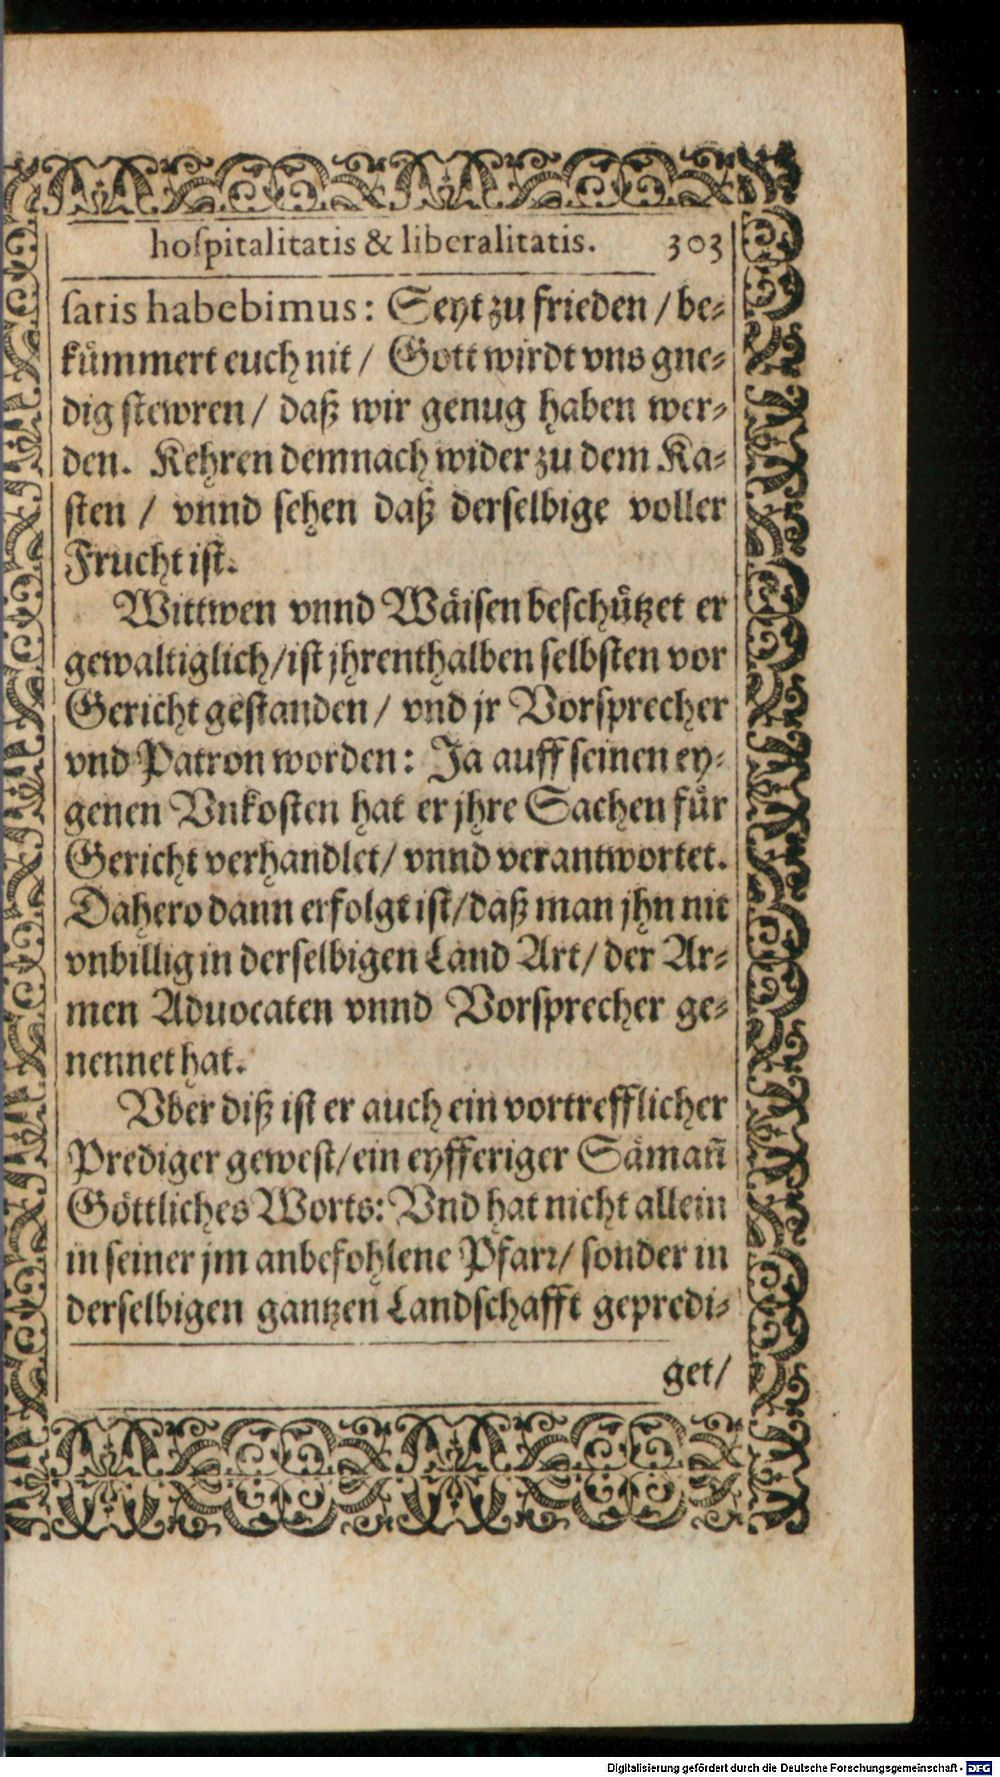 hoſpitalitatis & liberalitatis. 303
ſatis habebimus: Seyt zu frieden / be⸗
kuͤmmert euch nit / Gott wirdt vns gne⸗
dig ſtewren / daß wir genug haben wer⸗
den. Kehren demnach wider zu dem Ka⸗
ſten / vnnd ſehen daß derſelbige voller
Frucht iſt.
Wittwen vnnd Waͤiſen beſchuͤtzet er
gewaltiglich / iſt jhrenthalben ſelbſten vor
Gericht geſtanden / vnd jr Vorſprecher
vnd Patron worden: Ja auff ſeinen ey⸗
genen Vnkoſten hat er jhre Sachen fuͤr
Gericht verhandlet / vnnd verantwortet.
Dahero dann erfolgt iſt / daß man jhn nit
vnbillig in derſelbigen Land Art / der Ar⸗
men Aduocaten vnnd Vorſprecher ge⸗
nennet hat.
Vber diß iſt er auch ein vortrefflicher
Prediger geweſt / ein eyfferiger Saͤman̄
Goͤttliches Worts: Vnd hat nicht allein
in ſeiner jm anbefohlene Pfarꝛ / ſonder in
derſelbigen gantzen Landſchafft gepredi⸗
get /
Digitalisierung gefördert durch die Deutsche Forschungsgemeinschaft - DFG